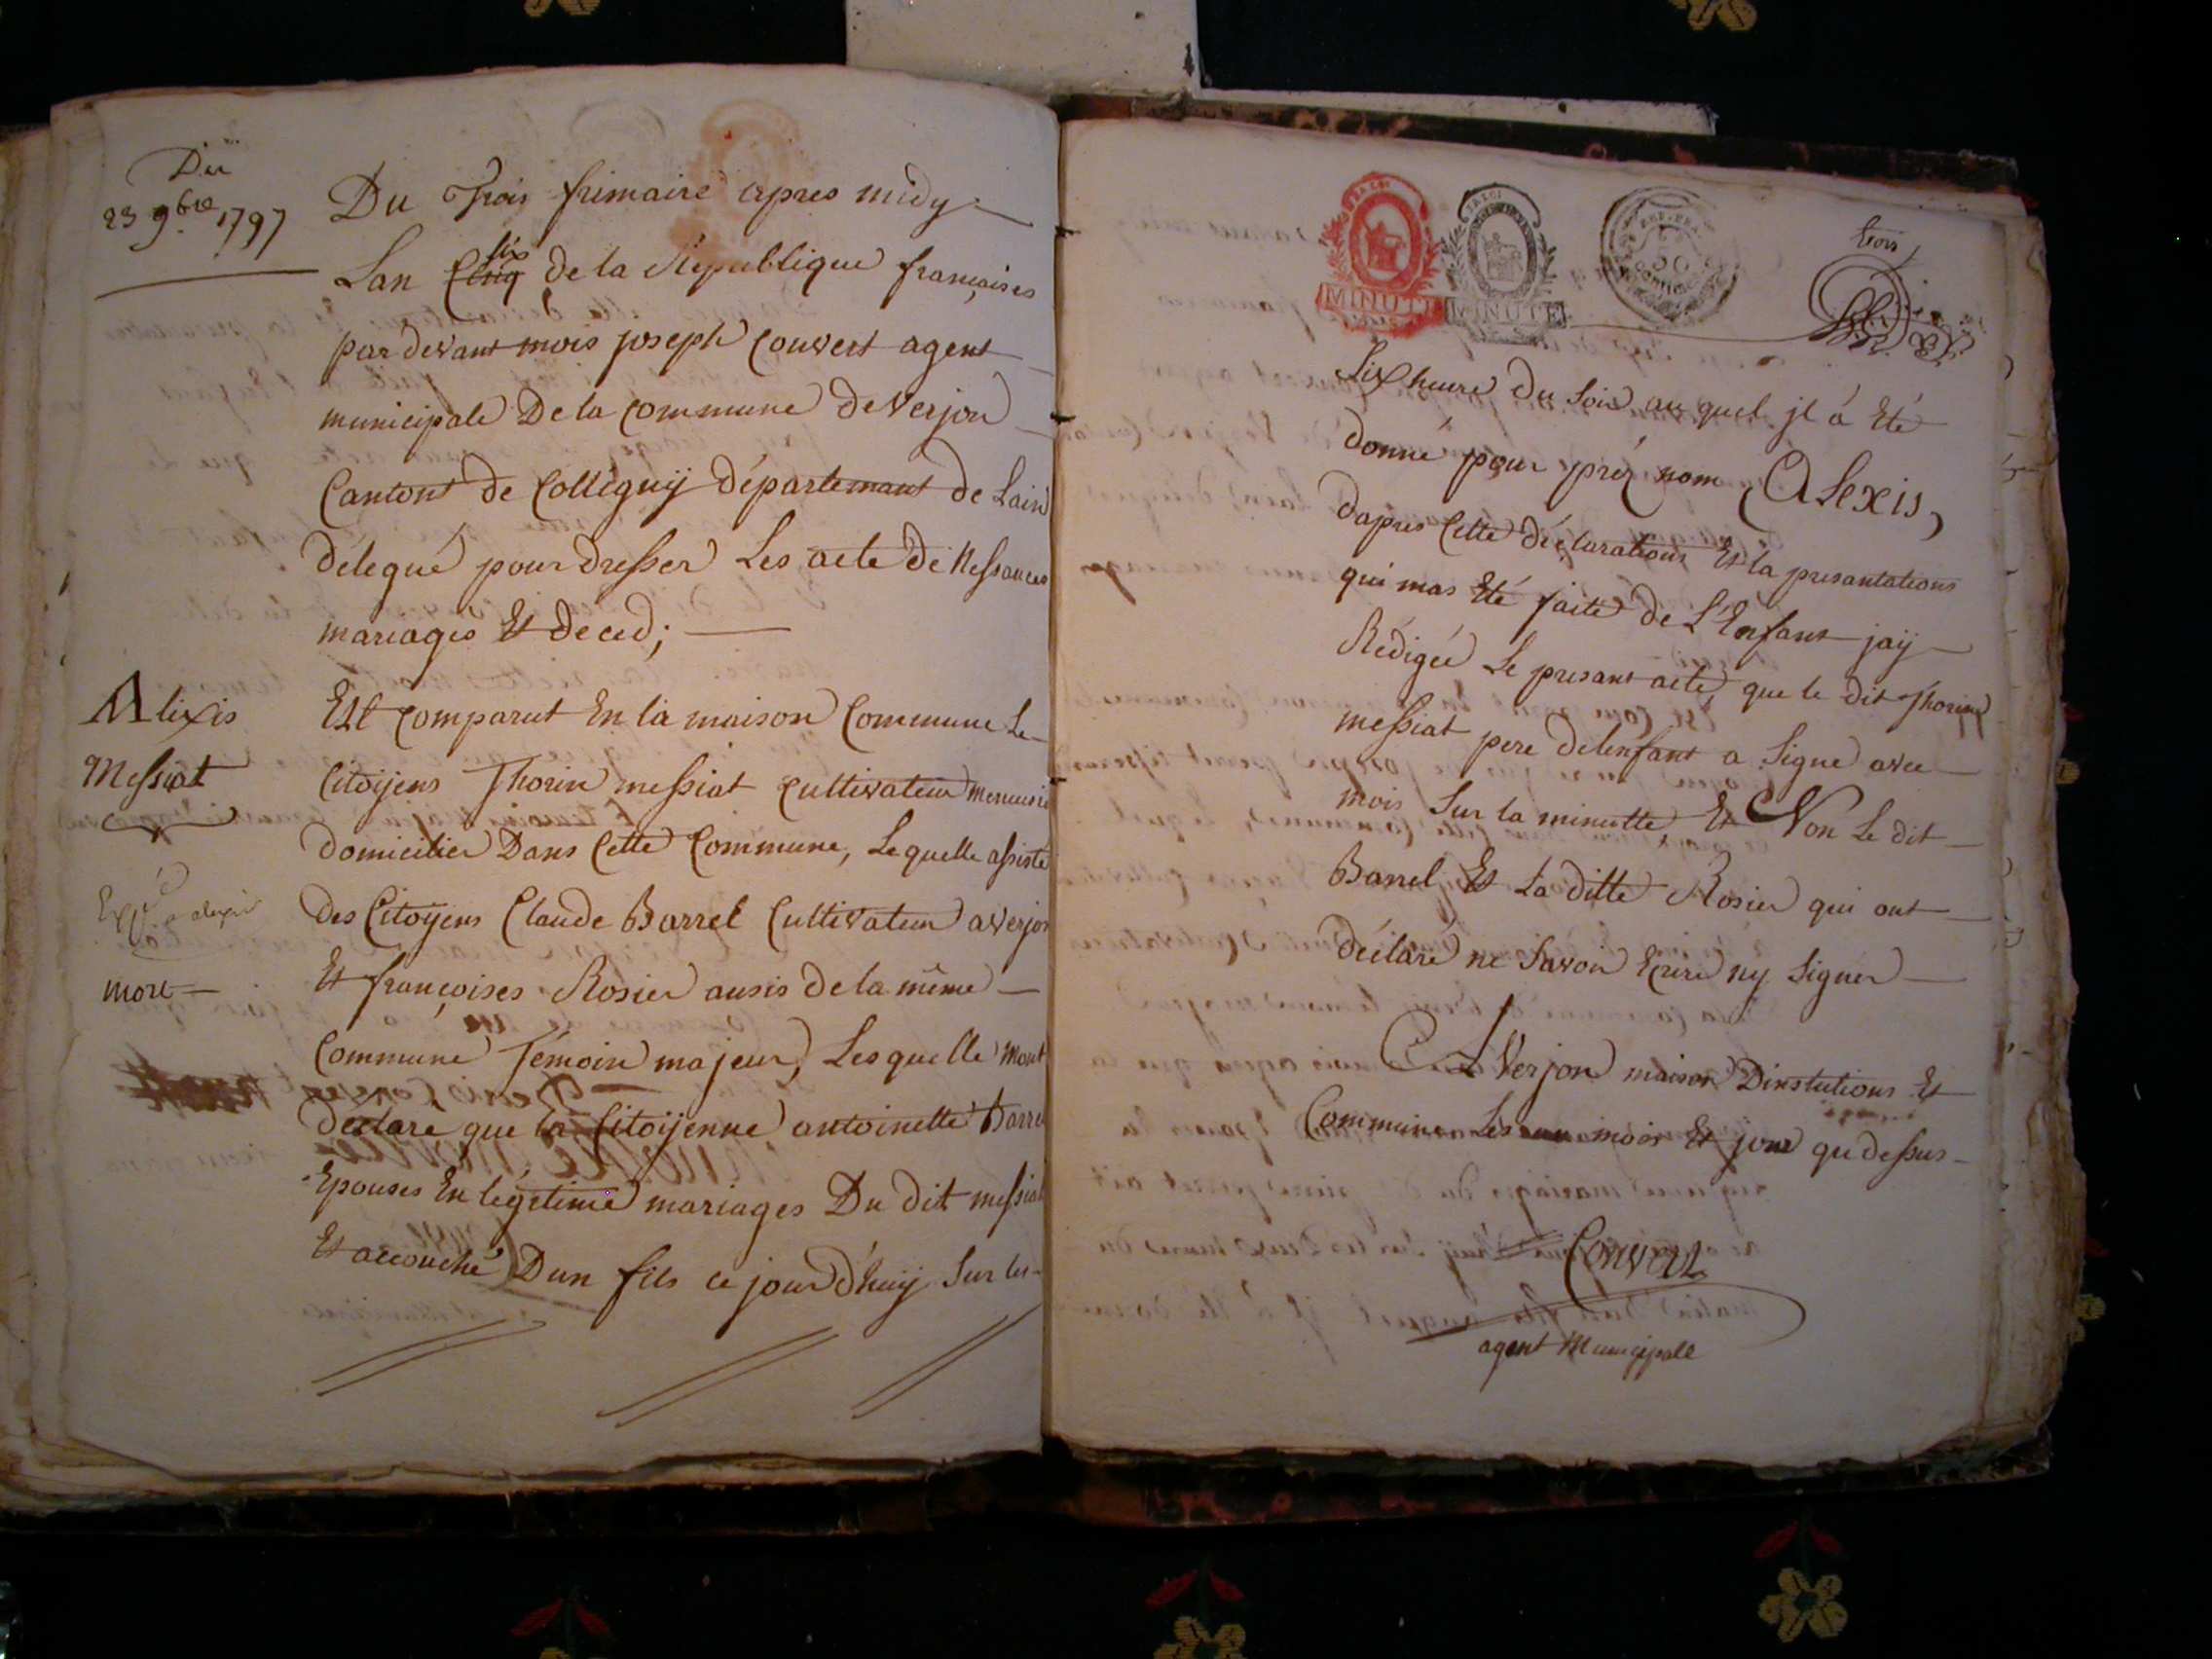 Du
23 9bre 1797
Du Trois frimaire apres midy
Lan Cinq six de la République françaises
par devant mois joseph Convert agent
municipale De la Commune de Verjon
Cantont de Colligny départemant de Lain
délegué pour dresser Les acte de Nessances
mariages Et deced;
Alixis
Messiat
mort
Est Comparut En la maison Commune Le
Citoÿens Thorin messiat Cultivateur menuisie
domicilier Dans Cette Commune, Le quelle assiste
des Citoÿens Claude Barrel Cultivateur a Verjon
Et françoises Rosier ausis de la même
Commune Témoin majeur, Les quelle mont
déclaré que la Citoÿenne antoinette Barre
Epouses En légetime mariages Du dit messiat
Et accouché Dun fils ce jour d'huÿ Sur les
trois
MINUTE
MINUTE
50
Six heure du Soir au quel jl á Eté
donné pour préz nom Alexis,
dapres Cette déclarations Et la presantations
qui mas Eté faite de L'Enfant jaÿ
Rédigée Le presant acte, que le dit Thorin
messiat pere delenfant a Signé avec
mois Sur la minutte, Et Non Le dit
Barrel Et La ditte Rosier qui ont
déclaré ne Savoir Ecrire ny Signer
A Verjon maison Dinstutions Et
Commune Les an mois Et jour qu dessus
Convert
agent Municipale